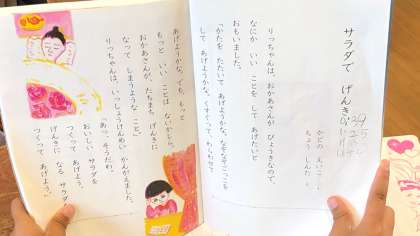 サラダで げんき
かどの えいこ
りっちゃんは、おかあさんが びょうきなので、
なにか いい ことを して あげたいと
おもいました。
「かたを たたいて あげようかな。なぞなぞごっこを
して あげようかな。くすぐって、わらわせて
あげようかな。でも、もっと
もっと いい ことは ないかしら。
おかあさんが、たちまち、げんきに
なって しまうような こと。」
りっちゃんは、いっしょうけんめい かんがえました。
「あっ、そうだわ。
おいしい サラダを
つくって あげよう。
げんきに なる サラダを
つくって あげよう。」